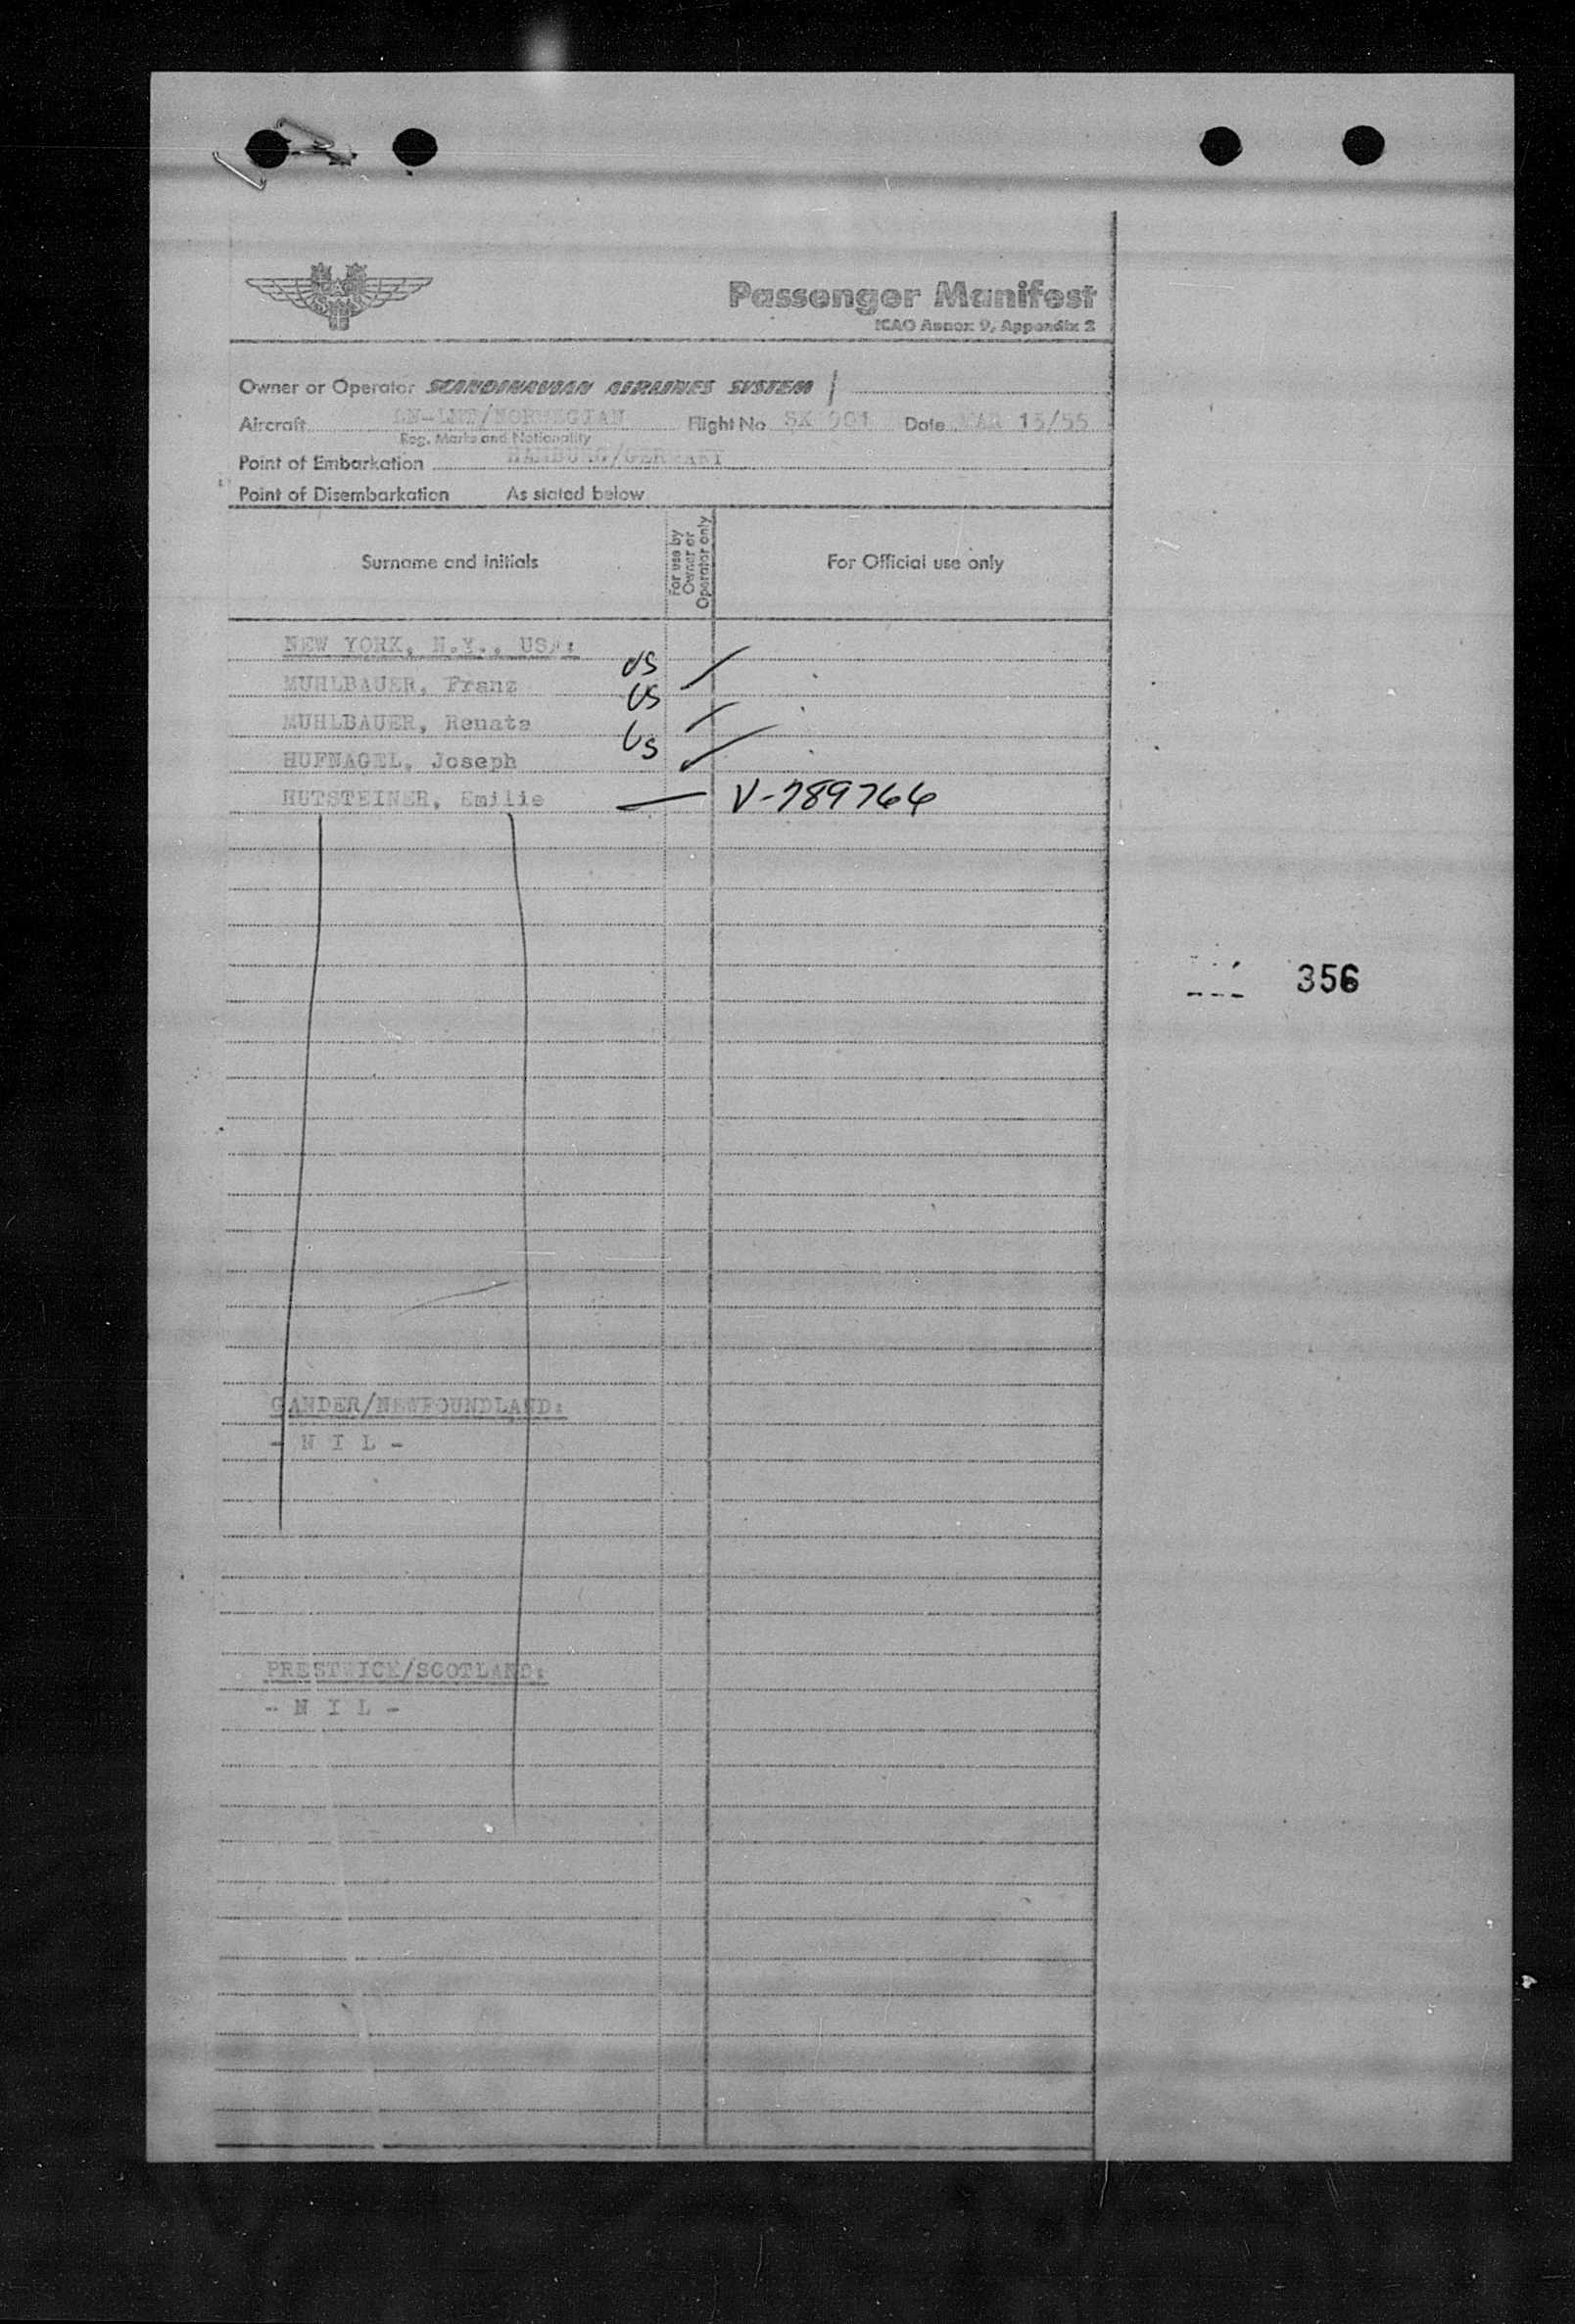 Passenger Manifest
ICAO Annex 9, Appendix 2
Owner or Operator SCANDINAVIAN AIRLINES SYSTEM /
Aircraft /NORWEGIAN Flight No SK 901 Date MAR /55
Reg. Marks and Nationality
Point of Embarkation HAMBURG/GERMANY
Point of Disembarkation As stated below
Surname and Initials
For use by
Owner or
Operator only
For Official use only
NEW YORK, N.Y., USA:
MUHLBAUER, Franz US
MUHLBAUER, Renate US
HUFNAGEL, Joseph US
HUTSTEINER, Emilie — V-789766
356
GANDER/NEWFOUNDLAND:
- N I L -
PRESTWICK/SCOTLAND:
- N I L -